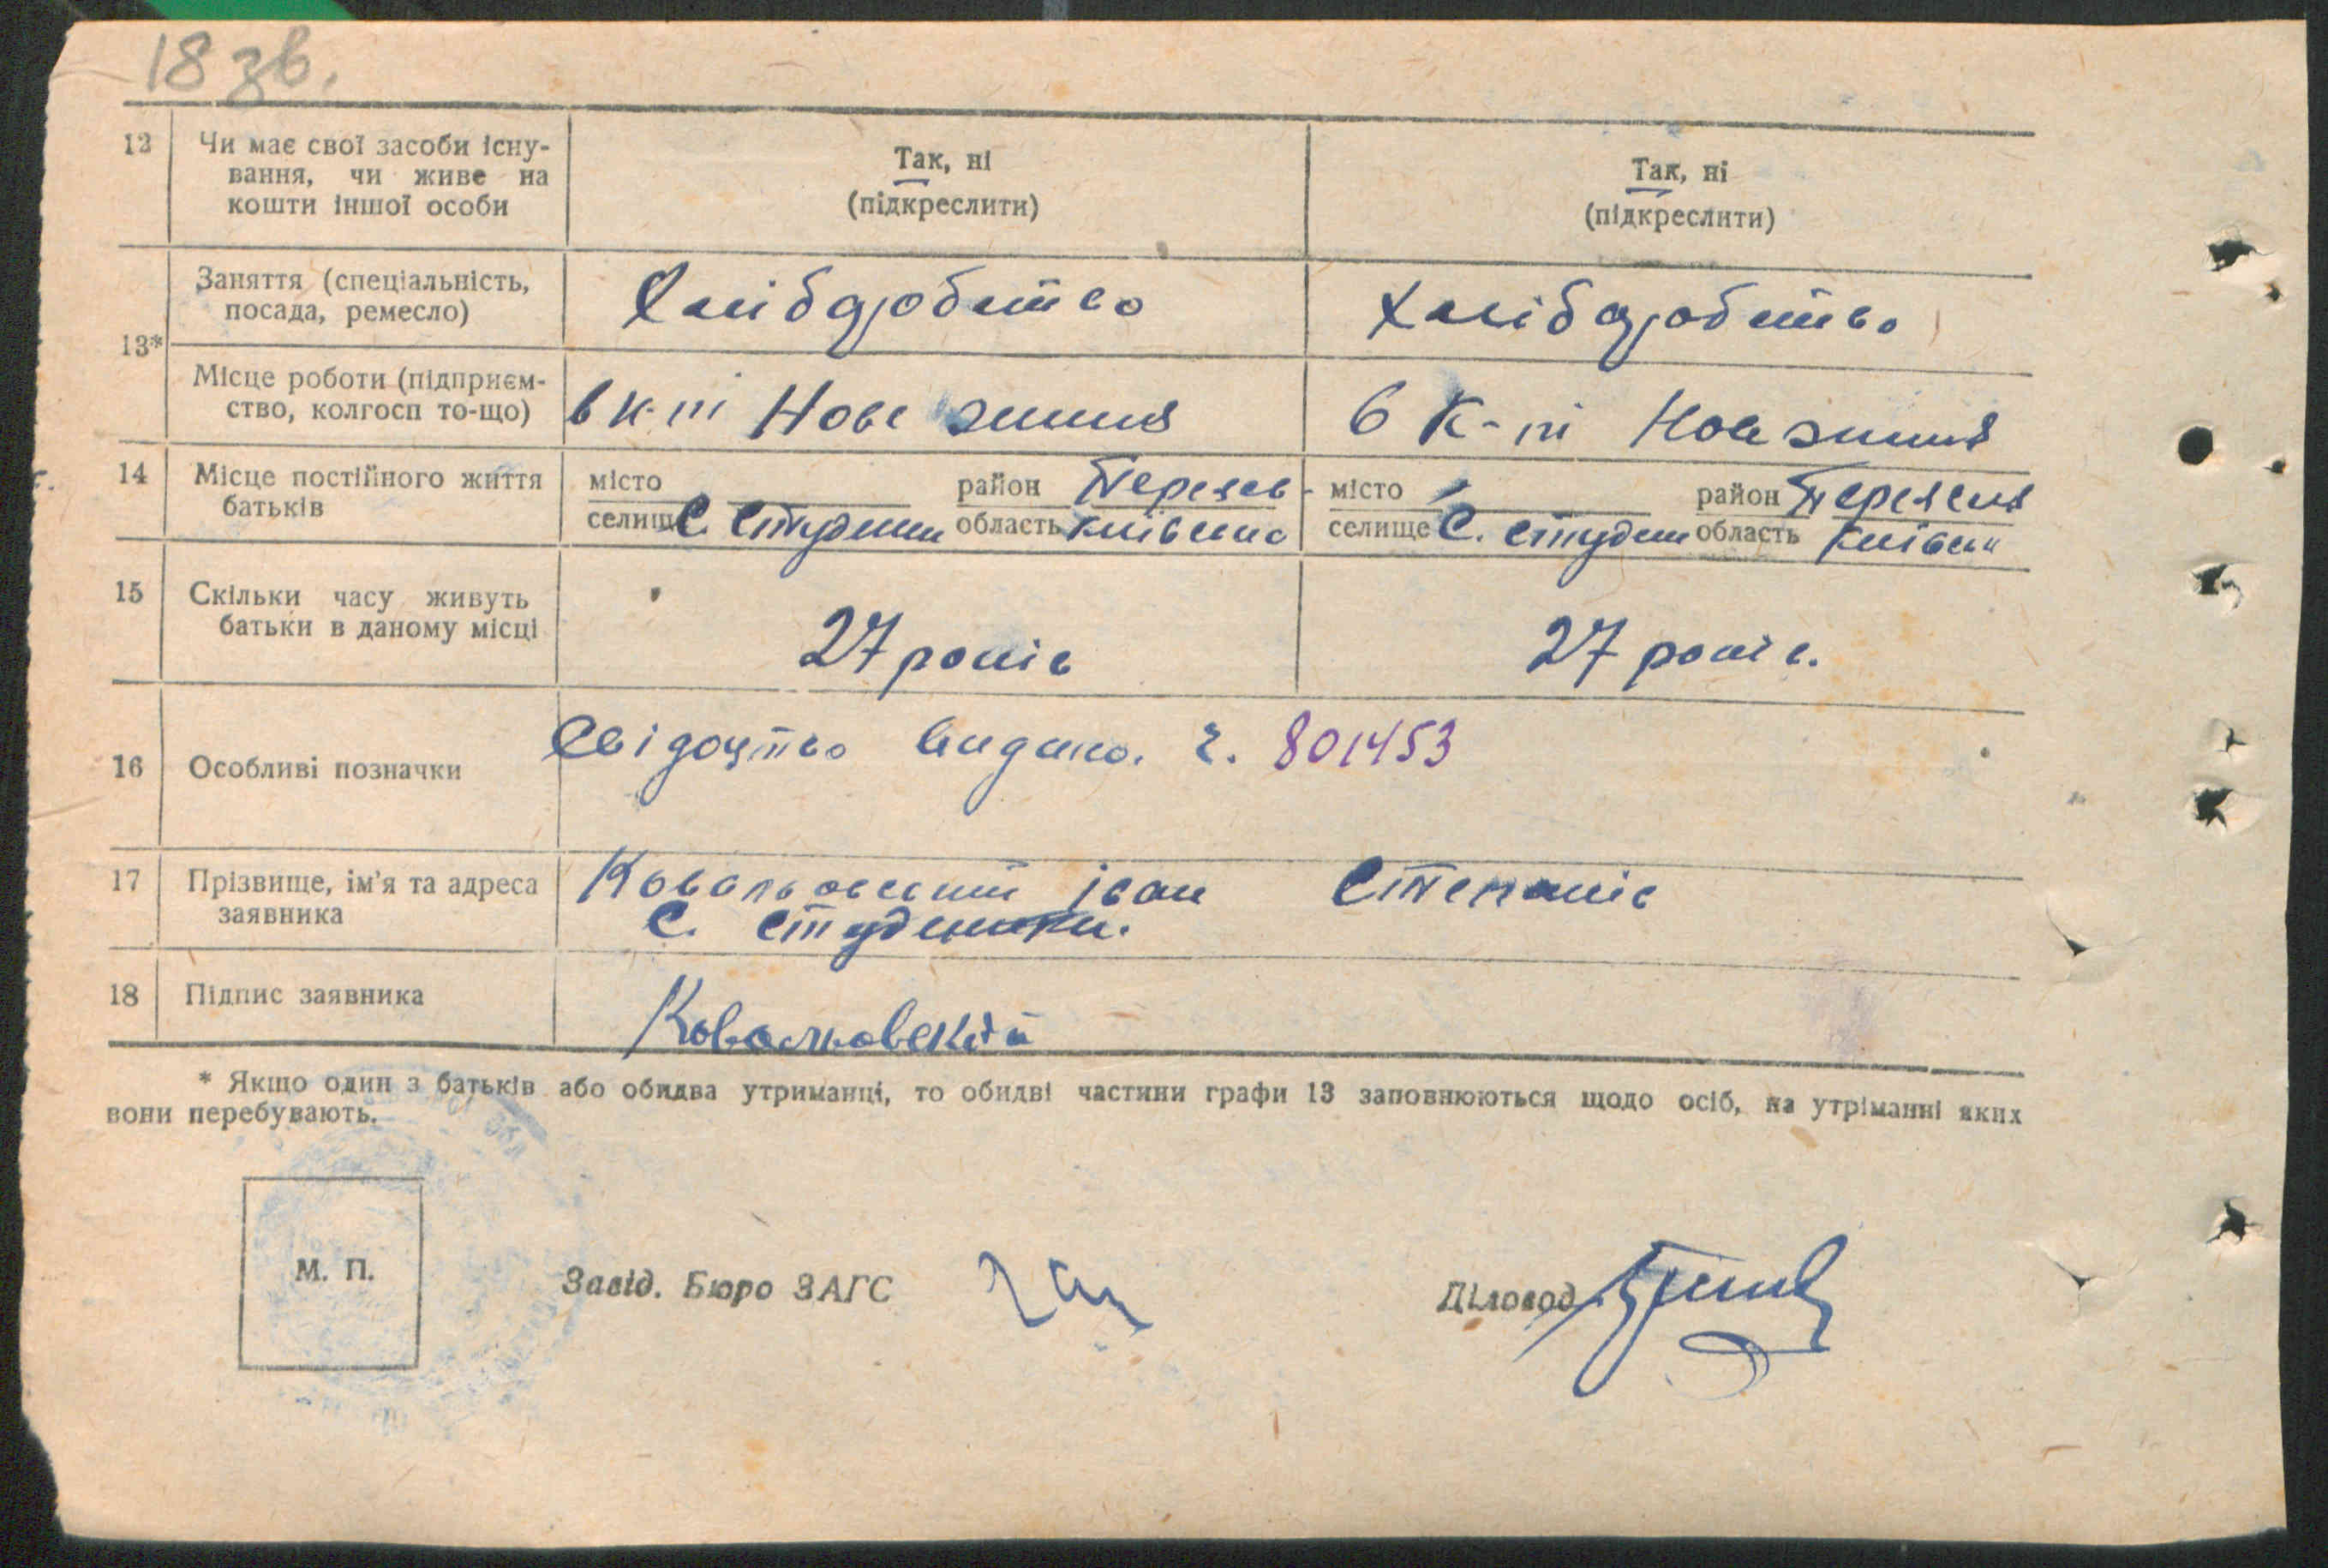 18 зв.
12 Чи має свої засоби існу- Так, ні Так, ні
вання, чи живе на (підкреслити) (підкреслити)
кошти іншої особи
13* Заняття (спеціальність, Хлібдробство Хлібдробство
посада, ремесло)
Місце роботи (підприєм- в к-пі Нове життя в к-пі Нове життя
ство, колгосп то-що)
14 Місце постійного життя місто район Переяс місто район Переясл
батьків селище С. Студени область Київсько селище С. Студен область Київськ
15 Скільки часу живуть 27 років 27 років.
батьки в даному місці
16 Особливі позначки Свідоцтво видано. ч. 801453
17 Прізвище, ім'я та адреса Ковальовский іван Степанів
заявника С. Студеники.
18 Підпис заявника Ковальовский
* Якщо один з батьків або обидва утриманці, то обидві частини графи 13 заповнюються щодо осіб, на утріманні яких
вони перебувають.
М. П. Завід. Бюро ЗАГС Діловод